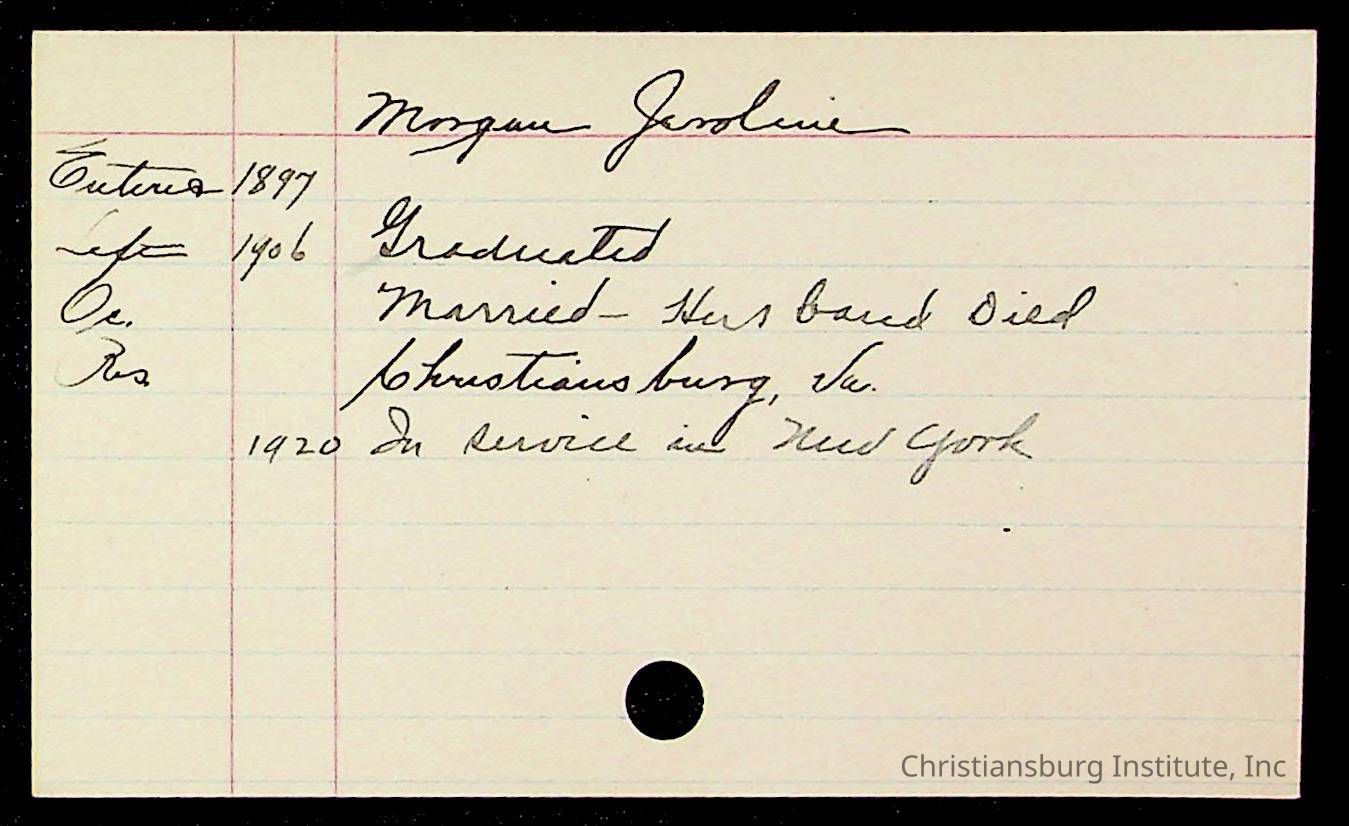 Morgan Jaroline
Entered 1897
Left 1906 Graduated
Oc. Married - Husband Died
Res. Christiansburg, Va.
1920 In service in New York
Christiansburg Institute, Inc